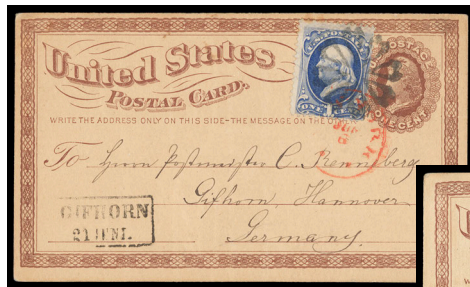 United States
POSTAL CARD.
WRITE THE ADDRESS ONLY ON THIS SIDE-THE MESSAGE ON THE
U.S. POSTAGE
ONE CENT
POSTAGE
ONE CENT
To Herrn Postmeister C. Rennsberg
Gifhorn, Hannover
Germany.
GIFHORN
21